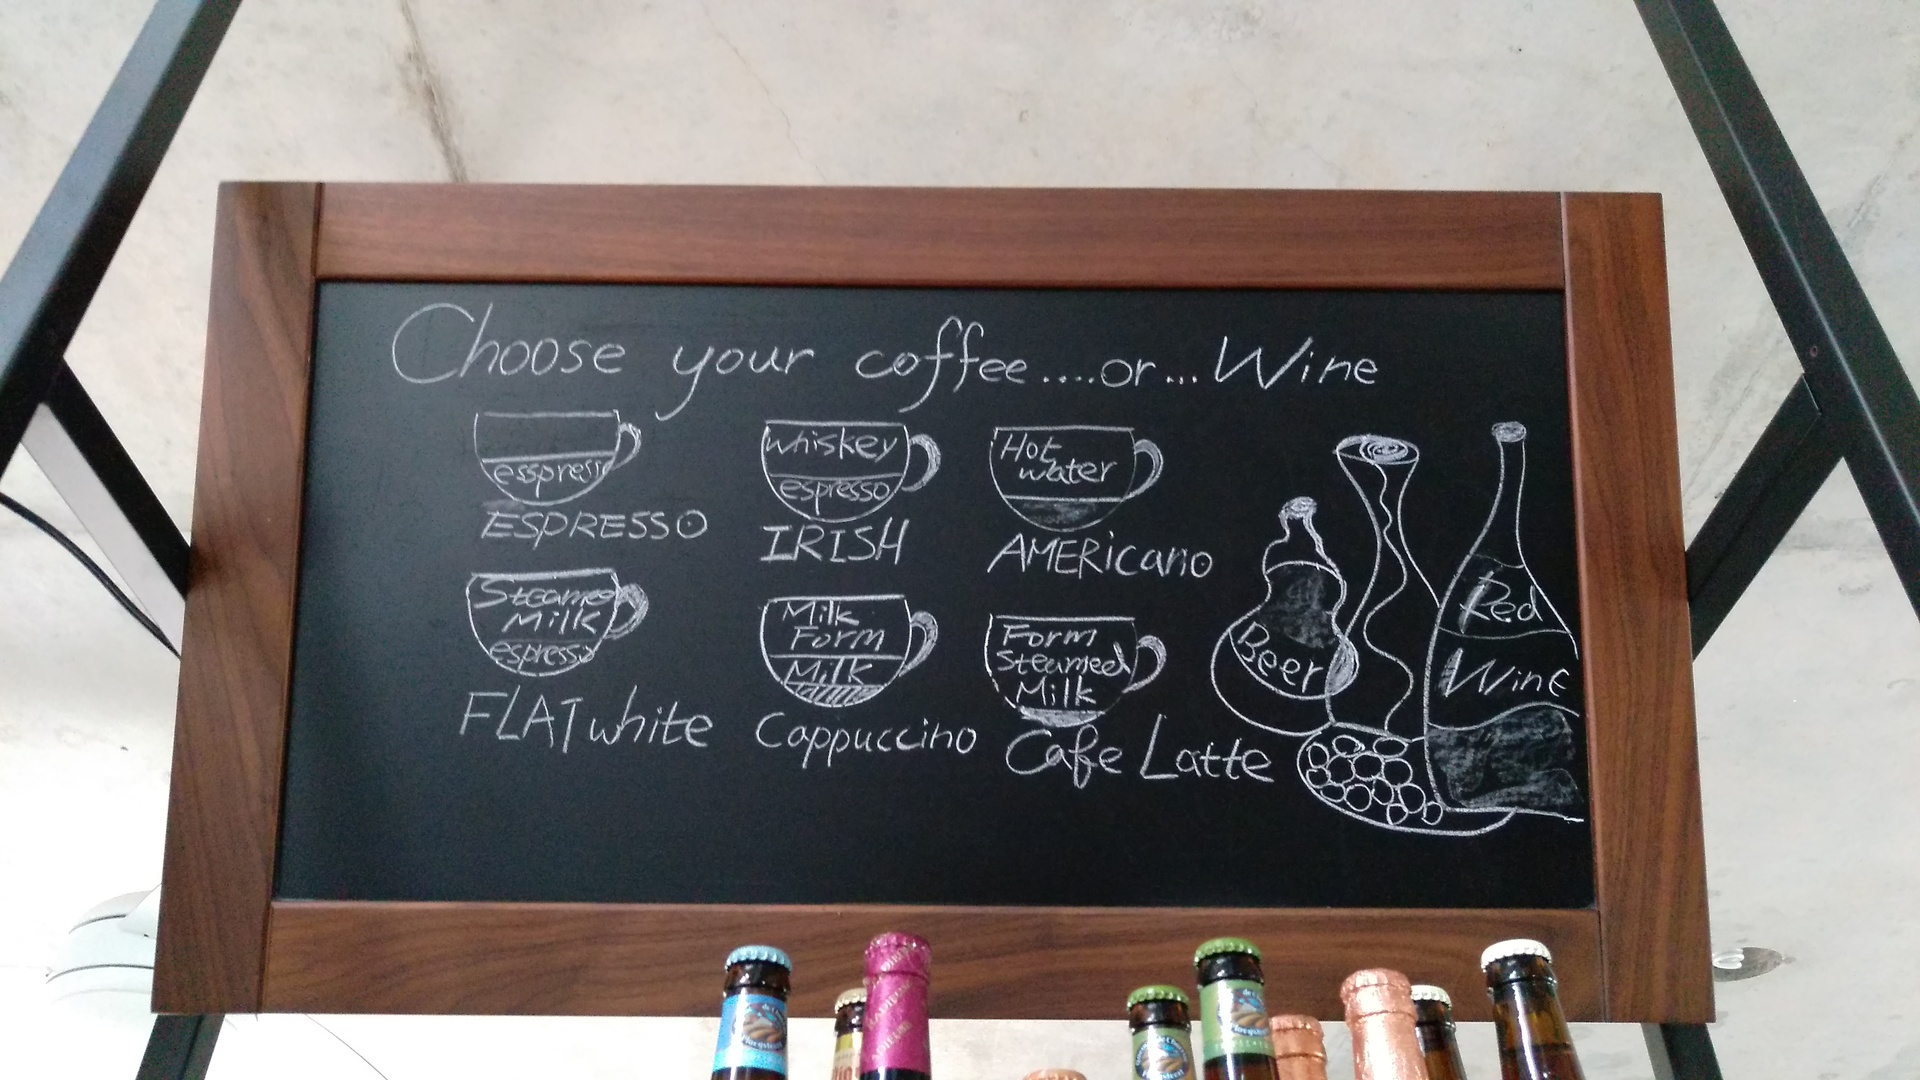 Choose your coffee....or...Wine
esspresso
ESPRESSO
whiskey
espresso
IRISH
Hot
water
AMERicano
Steamed
Milk
espresso
FLAT white
Milk
Form
Milk
Cappuccino
Form
Steamed
Milk
Cafe Latte
Beer
Red
Wine